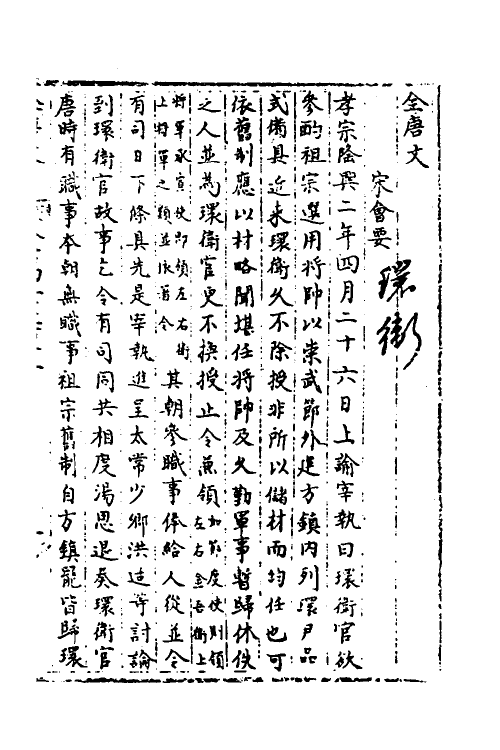 全唐文
宋會要
環衛
孝宗隆興二年四月二十六日上諭宰執曰環衛官欲
參酌祖宗選用將帥以崇武節外建方鎮內列環尹品
式備具近來環衛久不除授非所以儲材而均任也可
依舊制應以材略聞堪任將帥及久勤軍事暫歸休佚
之人並為環衛官更不換授止令兼領如節度使則領左右金吾衛上
將軍承宣使即領左右衛上將軍之類並依舊令其朝參職事俸給人從並令
有司日下條具先是宰執進呈太常少卿洪适等討論
到環衛官故事乞令有司同共相度湯思退奏環衛官
唐時有職事本朝無職事祖宗舊制自方鎮罷皆歸環